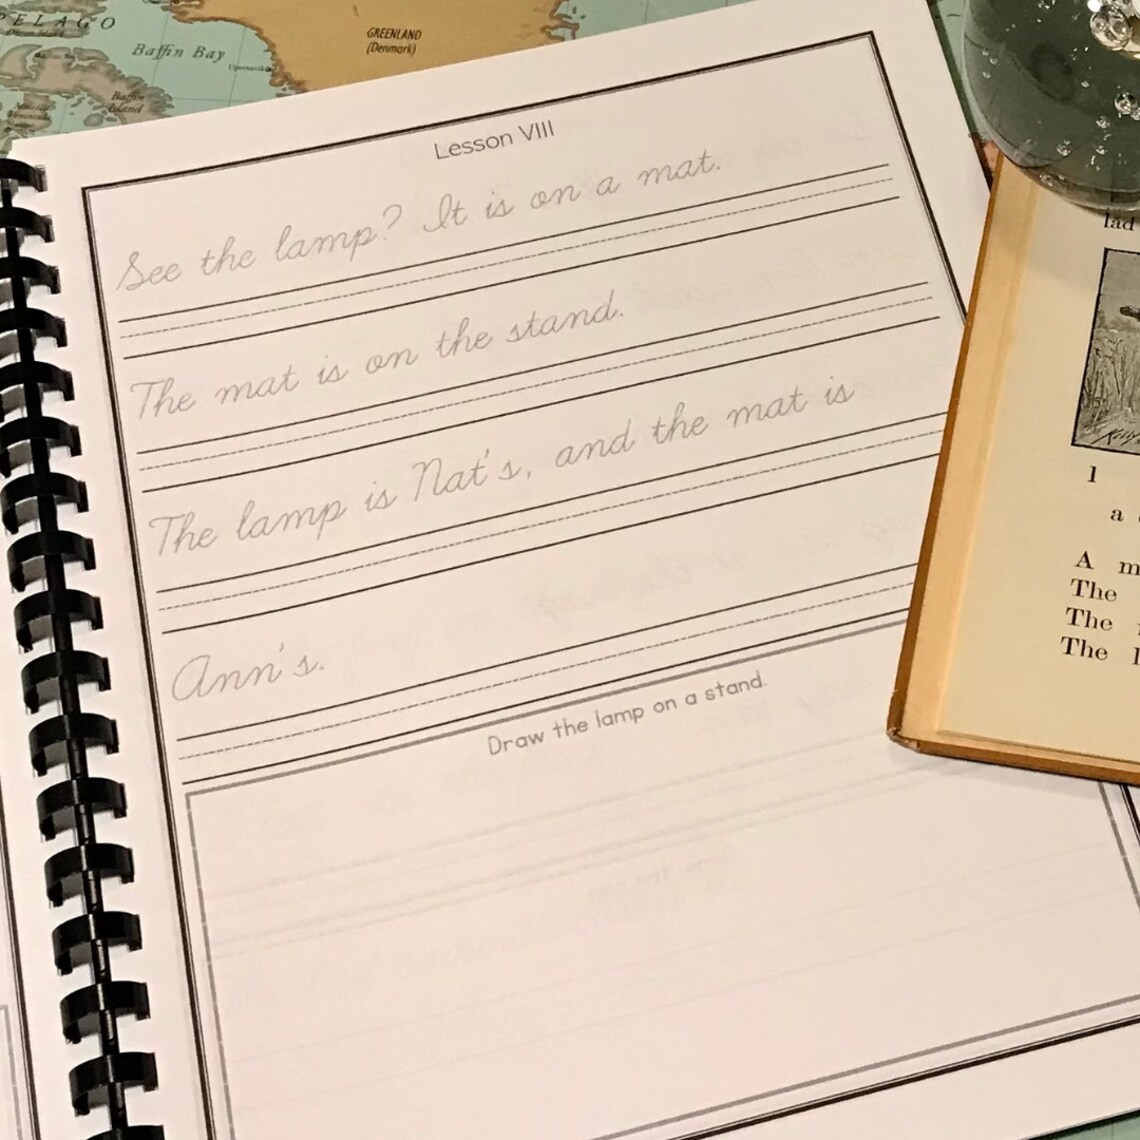 PELAGO
Baffin Bay
GREENLAND
(Denmark)
Baffin
Island
Lesson VIII
See the lamp? It is on a mat.
The mat is on the stand.
The lamp is Nat's, and the mat is
Ann's.
Draw the lamp on a stand.
lad
I
a
A m
The
The
The